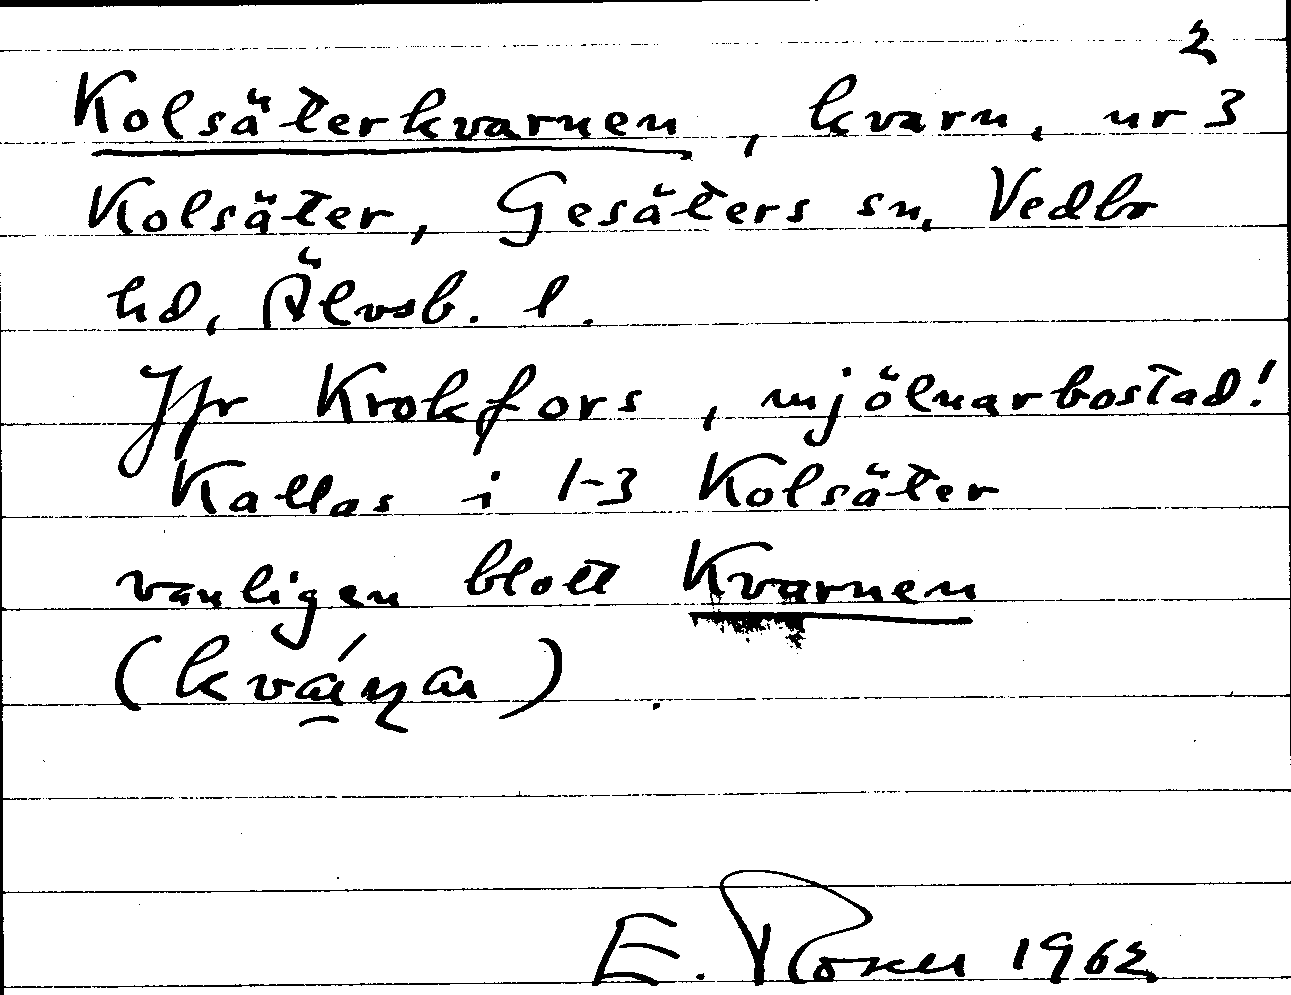 2
Kolsäterkvarnen, kvarn, nr 3
Kolsäter, Gesäters sn, Vedbo
hd, Älvsb. l.
Jfr Krokfors, mjölnarbostad!
Kallas i 1-3 Kolsäter
vanligen blott Kvarnen
E. Rosell 1962